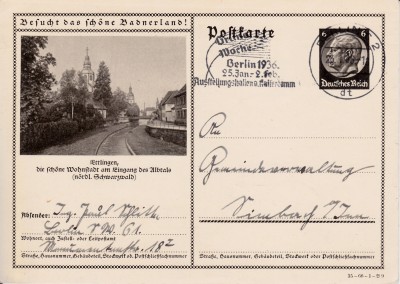 Besucht das schöne Badnerland!
Ettlingen,
die schöne Wohnstadt am Eingang des Albtals
(nördl. Schwarzwald)
Absender: Ing. Paul
Berlin S.W. 61.
Wohnort, auch Zustell- oder Leitpostamt
18²
Straße, Hausnummer, Gebäudeteil, Stockwerk od. Postschließfachnummer
Postkarte
Grüne
Woche
Berlin 1936
25.Jan.-2.Feb.
Ausstellungshallen a. Kaiserdamm
dt
6 6
Deutsches Reich
An
Gemeindeverwaltung
Simbach / Inn
Straße, Hausnummer, Gebäudeteil, Stockwerk od. Postschließfachnummer